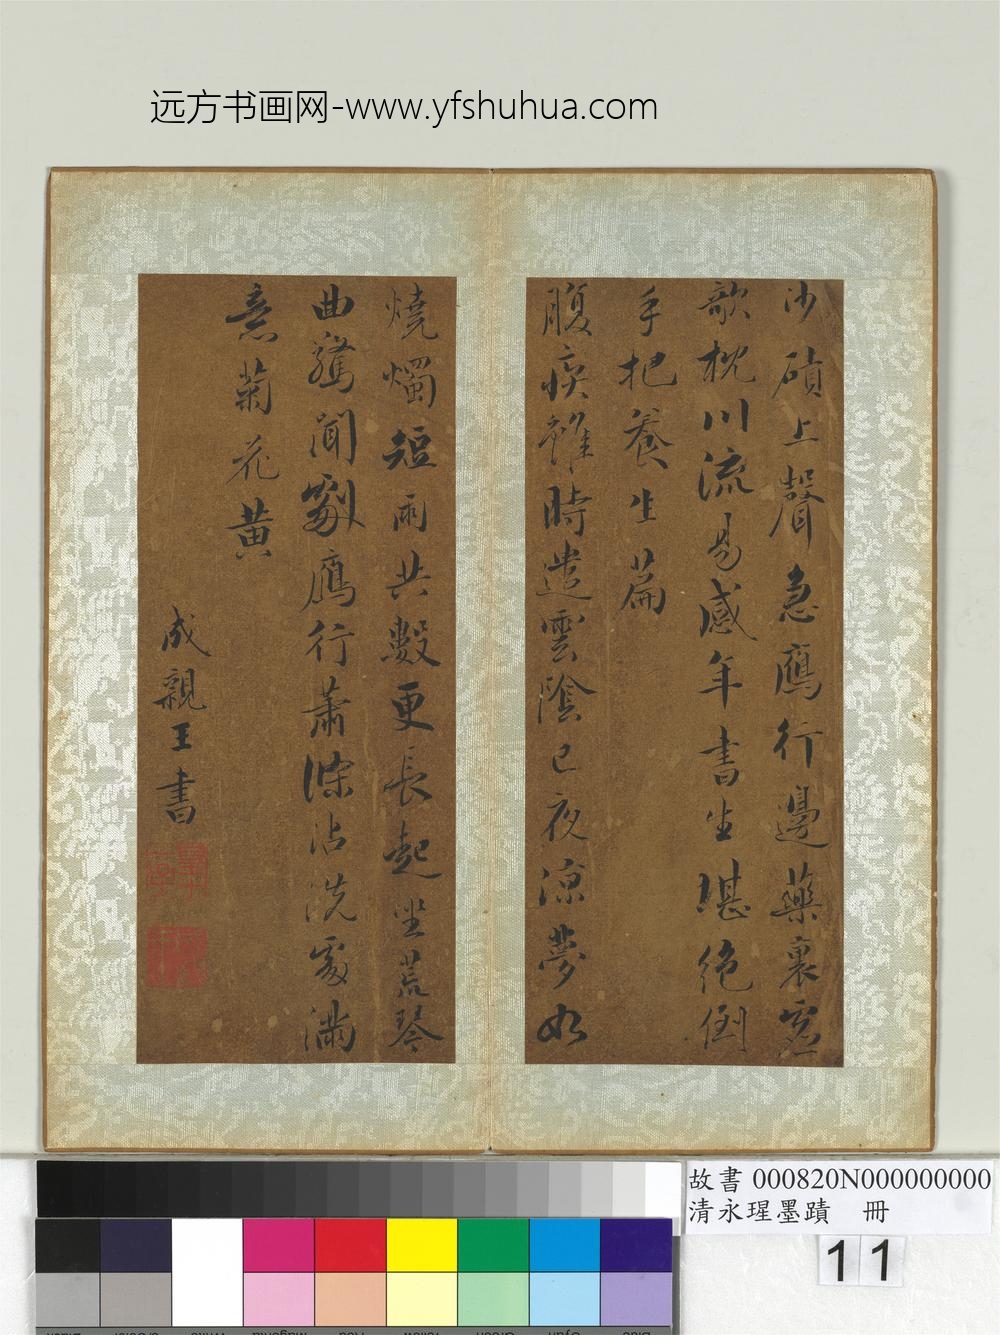 远方书画网-www.yfshuhua.com
沙磧上聲急鴈行邊藥裏
歌枕川流易感年書生堪絕倒
手把養生篇
腹疾離時遣雲陰已夜涼夢如
燒燭短雨共數更長起坐荒琴
曲驚聞劉鴈行蕭條沾洗處滿
意菊花黃
成親王書
故書 000820N000000000
清永瑆墨蹟 冊
11